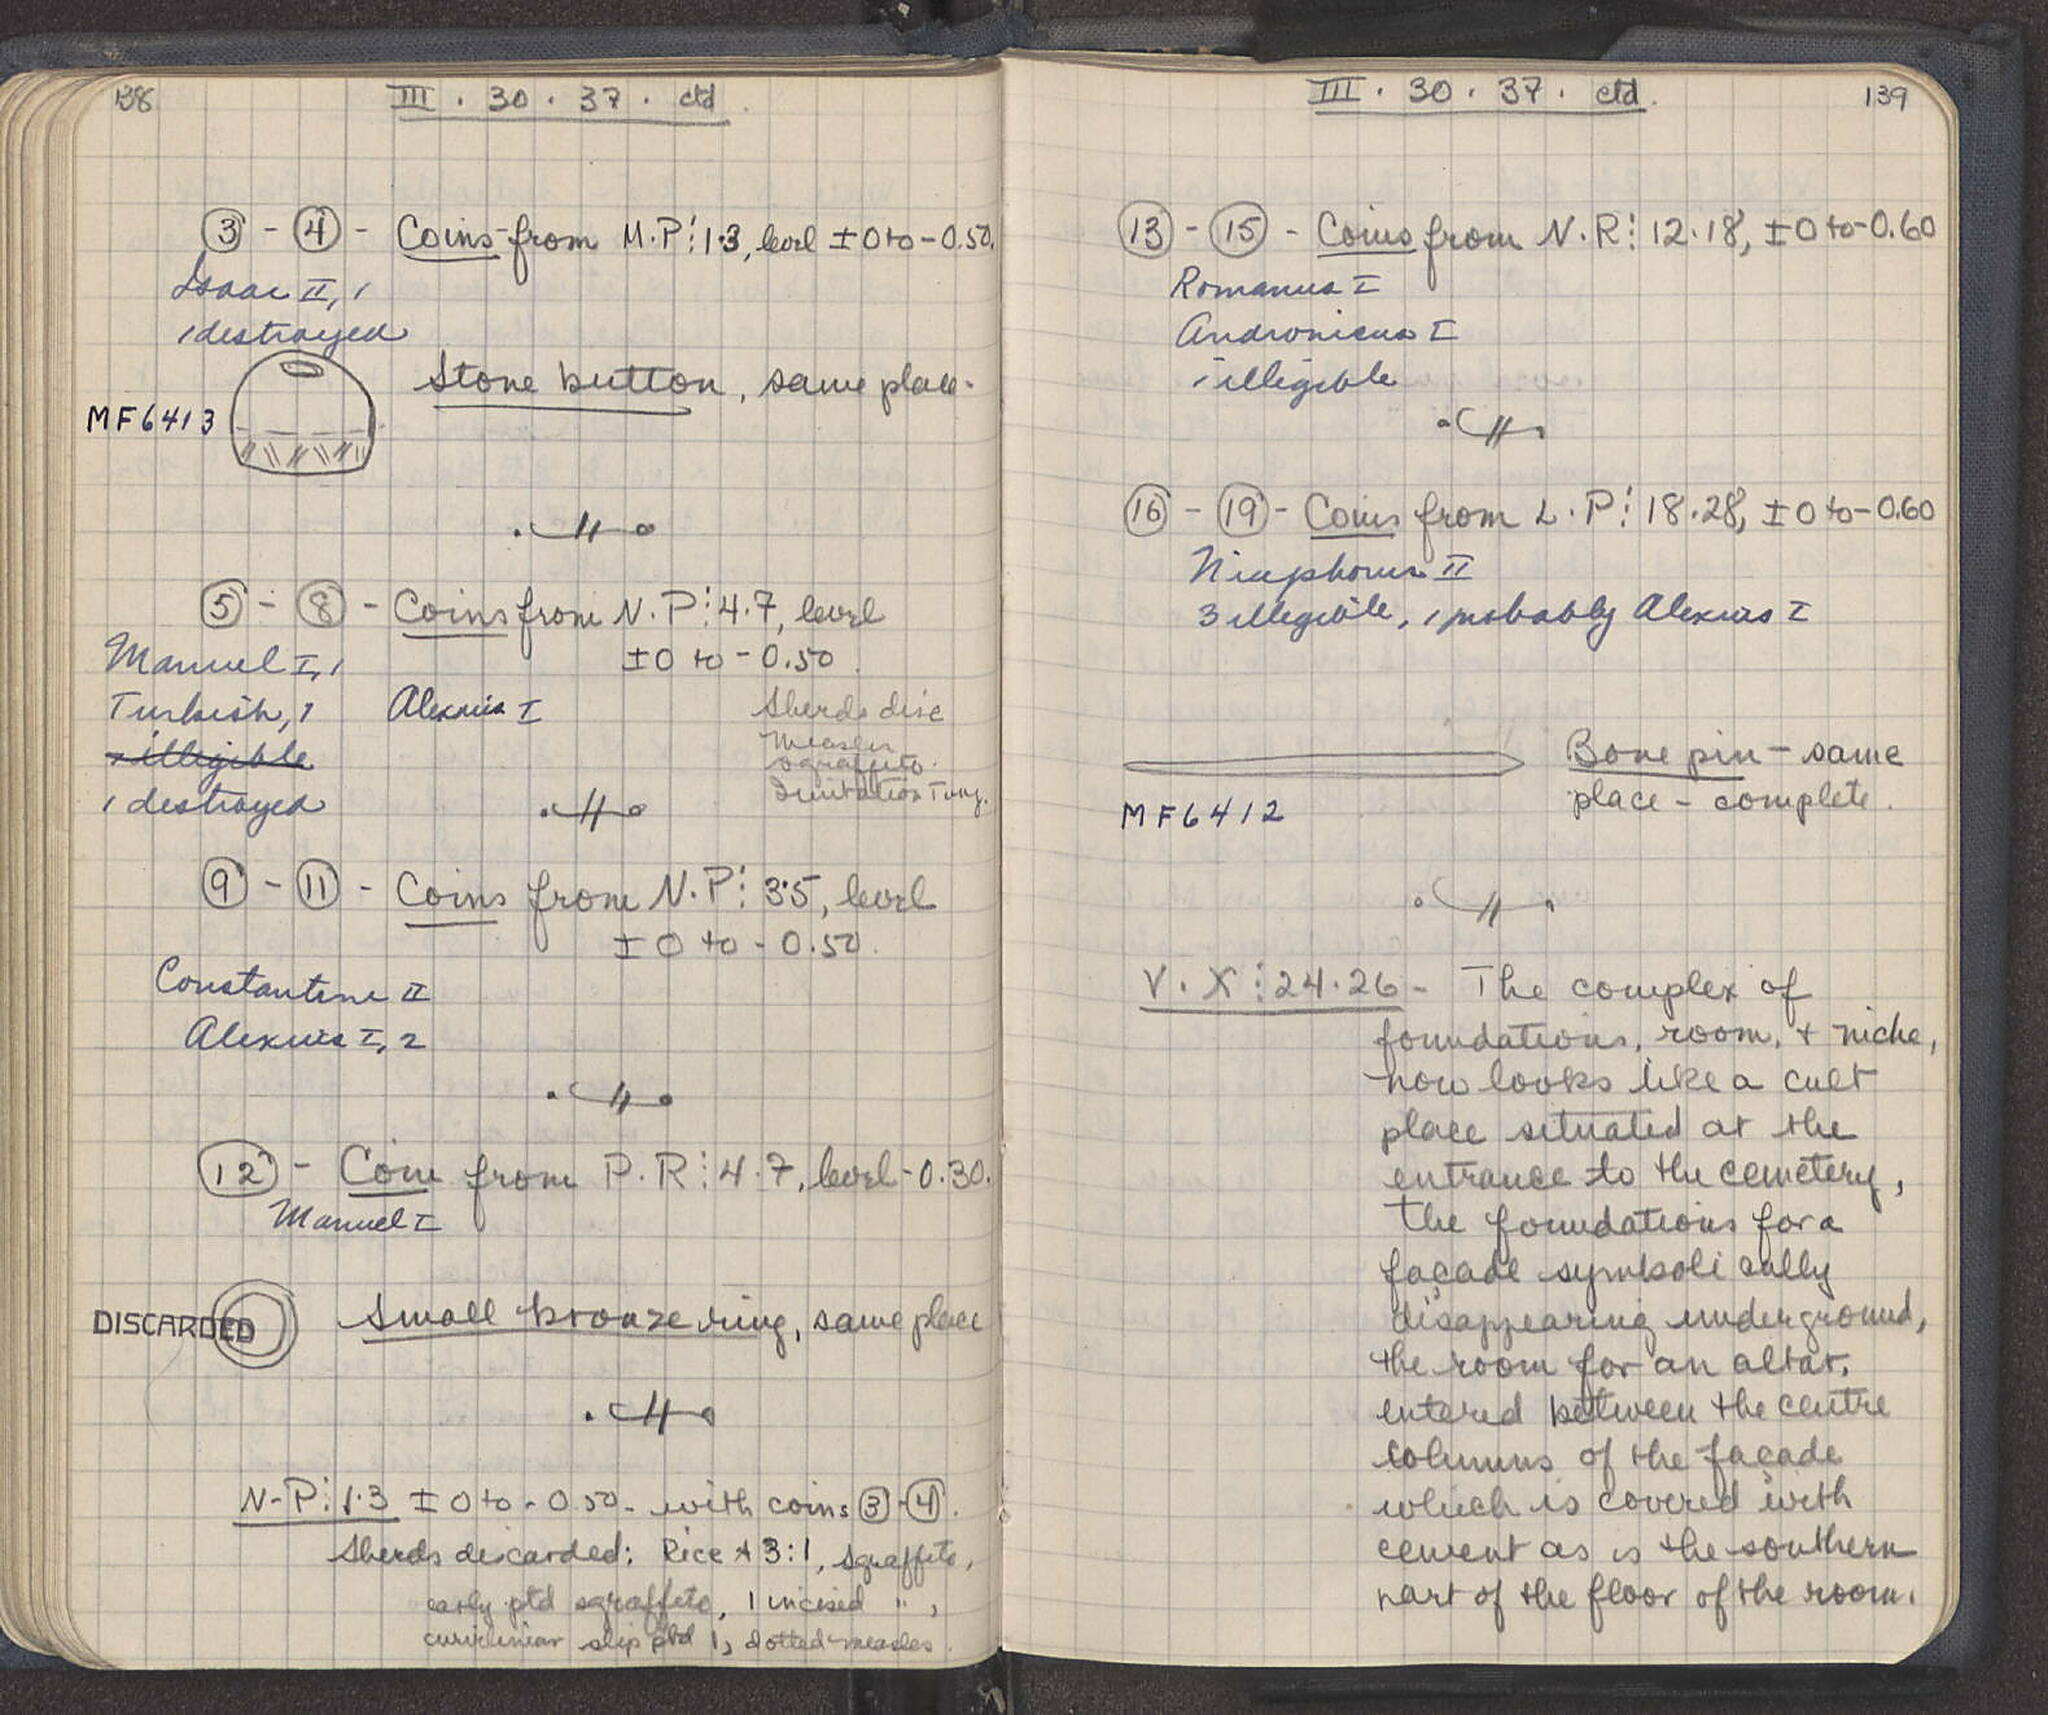 138
III . 30 . 37 . ctd.
③ - ④ - Coins from M.P⋮1.3, level ±0 to -0.50.
Isaac II, 1
1 destroyed
Stone button, same place.
MF6413
⑤ - ⑧ - Coins from N.P⋮4.7, level
±0 to -0.50.
Manuel I, 1
Turkish, 1 Alexius I
1 illegible
1 destroyed
Sherds disc
measles
sgraffito.
Imitation
⑨ - ⑪ - Coins from N.P⋮3.5, level
±0 to -0.50.
Constantine II
Alexius I, 2
⑫ - Coin from P.R⋮4.7, level -0.30.
Manuel I
DISCARDED
Small bronze ring, same place
N-P⋮1.3 ±0 to -0.50 - with coins ③-④.
Sherds discarded: Rice + 3:1, sgraffito,
early ptd sgraffito, 1 incised ",
curvilinear slip ptd 1, dotted-measles.
III . 30 . 37 . ctd.
139
⑬ - ⑮ - Coins from N.R⋮12.18, ±0 to -0.60
Romanus I
Andronicus I
1 illegible
⑯ - ⑲ - Coins from L.P⋮18.28, ±0 to -0.60
Nicephorus II
3 illegible, 1 probably Alexius I
Bone pin - same
place - complete.
MF6412
V.X⋮24.26 - The complex of
foundations, room, + niche,
now looks like a cult
place situated at the
entrance to the cemetery,
the foundations for a
façade symbolically
disappearing underground,
the room for an altar,
entered between the centre
columns of the façade
which is covered with
cement as is the southern
part of the floor of the room.